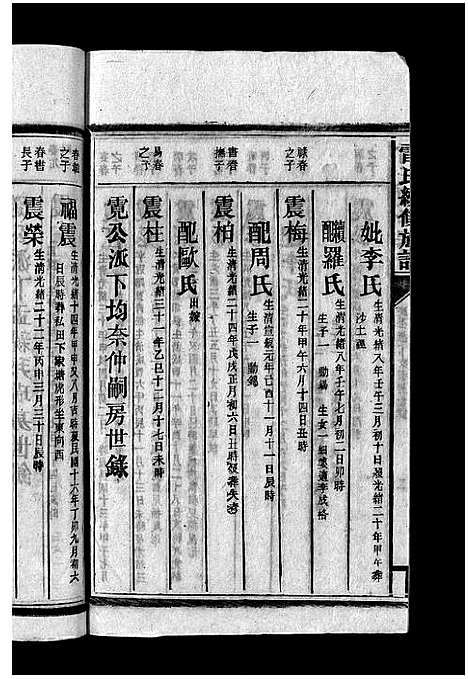 雷氏續修族譜
妣李氏 生清光緒八年壬午三月初十日歿光緒二十年甲午葬
沙土逕
繼配羅氏 生清光緒八年壬午七月初二日卯時
生子一 勳 生女一 適李成
詠春之子
震梅 生清光緒二十年甲午六月十四日丑時
配周氏 生清宣統元年己酉十一月十一日辰時
生子一 勳
書春撫子
震柏 生清光緒二十四年戊戌正月初六日丑時歿葬失考
配歐氏 田
易春之子
震柱 生清光緒三十一年乙巳十二月十七日未時
霓公派下均奈仲嗣房世錄
春 之子
福震 生清光緒十四年 八月 歿民國十六年丁卯九月初六
日辰時葬私田下家塘虎形坐東向西
春 長子
震榮 生清光緒二十二年丙申三月三十日辰時